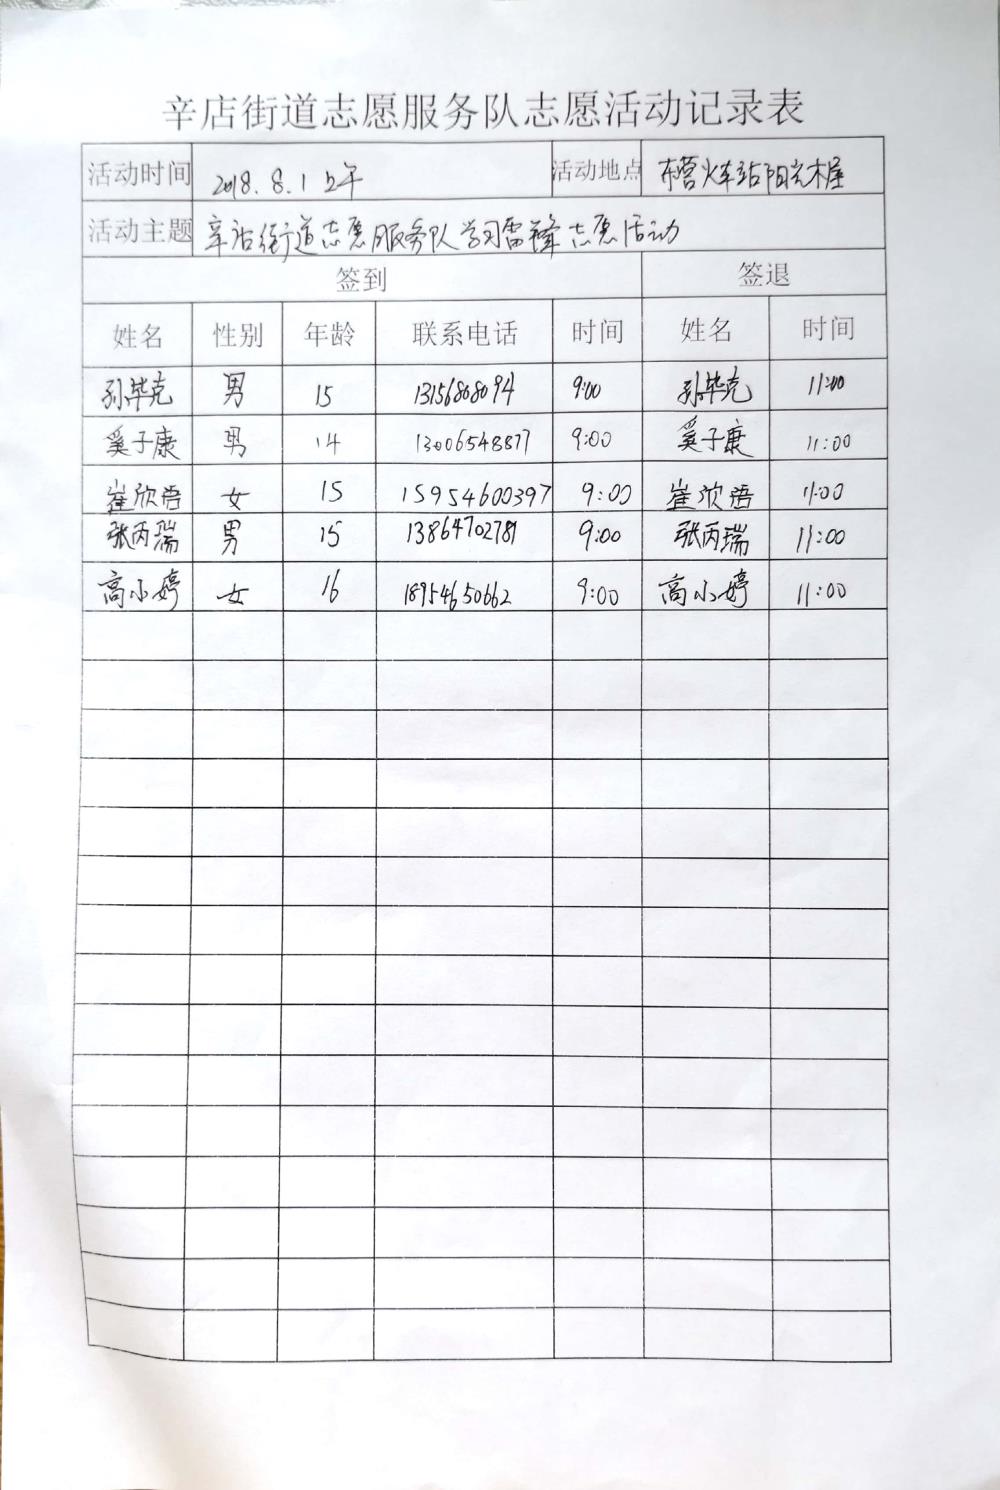 辛店街道志愿服务队志愿活动记录表
活动时间 2018.8.1 上午 活动地点 东营火车站阳光木屋
活动主题 辛店街道志愿服务队学习雷锋志愿活动
签到 签退
姓名 性别 年龄 联系电话 时间 姓名 时间
孙毕克 男 15 13156808094 9:00 孙毕克 11:00
奚子康 男 14 13006548877 9:00 奚子康 11:00
崔欣语 女 15 15954600397 9:00 崔欣语 11:00
张丙瑞 男 15 13864702781 9:00 张丙瑞 11:00
高小婷 女 16 18954650662 9:00 高小婷 11:00